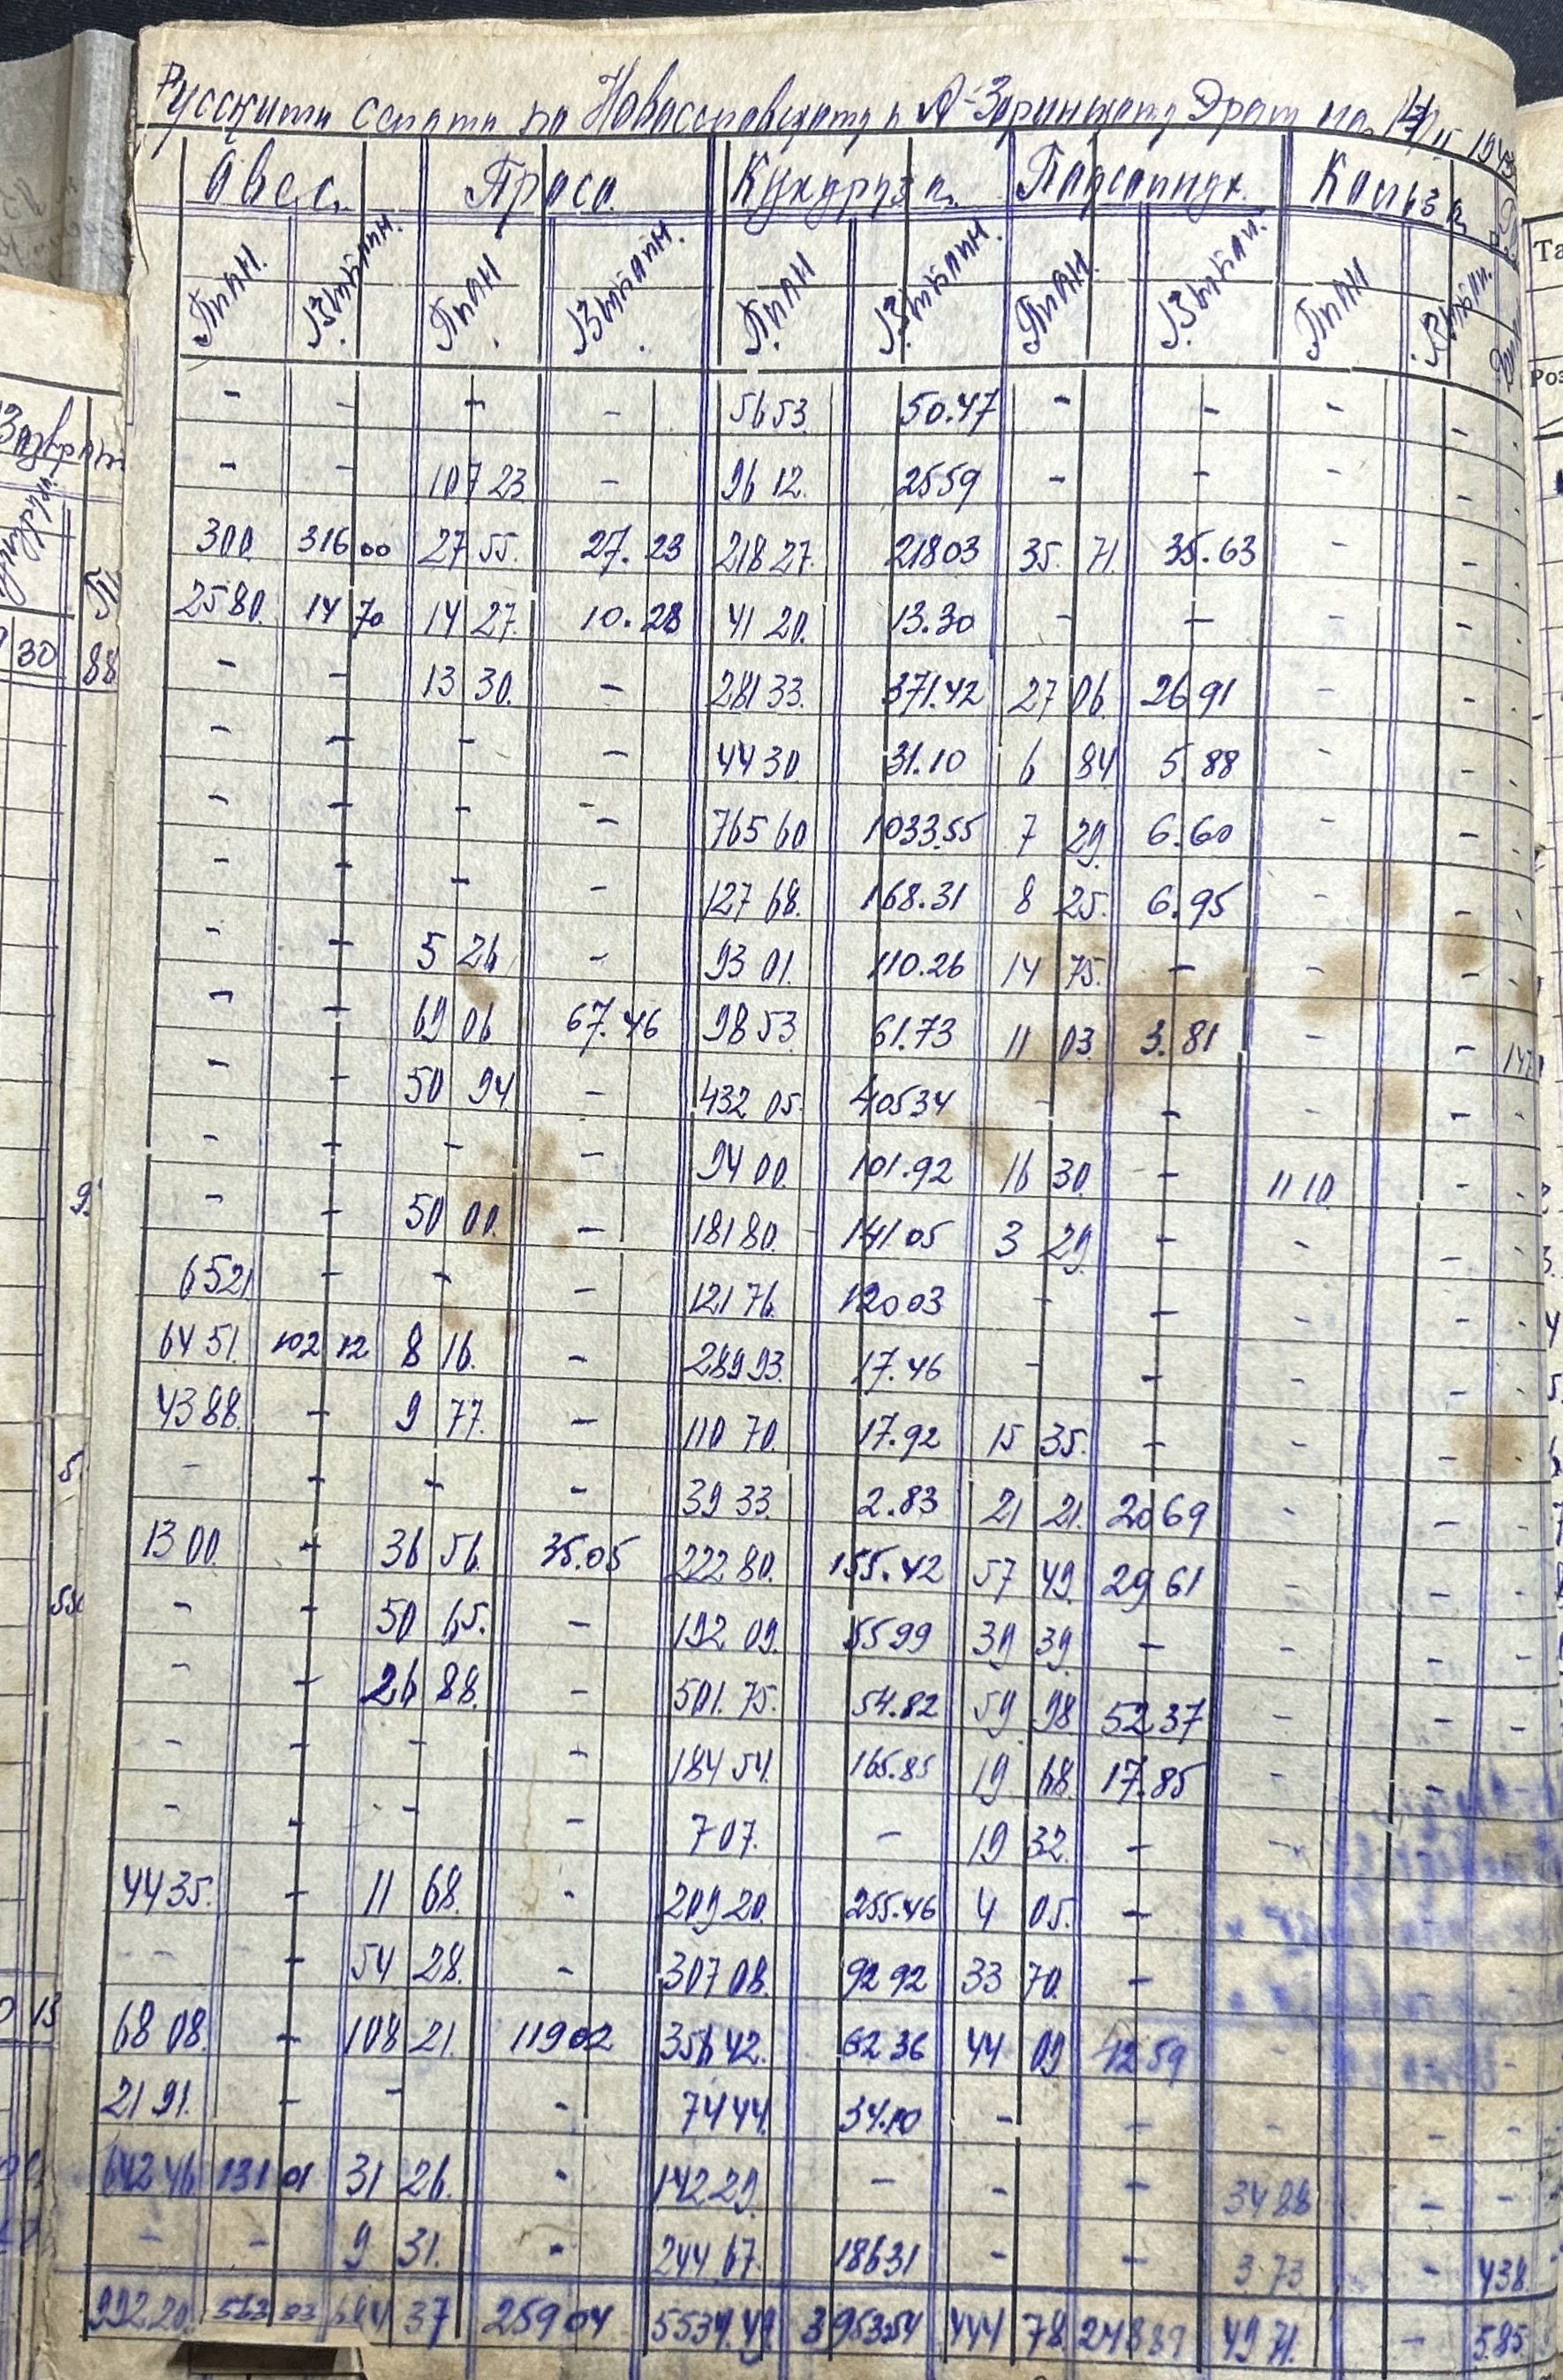 Овес. Проса. Кукуруза. Подсолнух. Кольза
План. Выполн. План Выполн. План Выполн. План. Выполн. План Выполн.
- - - - 56 53. 50.47 - - - -
- - 107 23 - 96 12. 25 59 - - - -
300. 316 00 27 55. 27. 23 218 27. 218 03 35. 71. 35.63 - -
25 80. 14 70 14 27. 10. 28 41 20. 13.30 - - - -
- - 13 30. - 281 33. 371.42 27 06. 26 91 - -
- - - - 44 30 31.10 6 84 5.88 - -
- - - - 765 60 1033.55 7 29. 6.60 - -
- - - - 127 68. 168.31 8 25. 6.95 - -
- - 5 26 - 93 01. 110.26 14 75. - - -
- - 69 06 67.46 98 53. 61.73 11 03. 3.81 - - 147
- - 50 94 - 432 05. 405 34 - - - -
- - - - 94 00. 101.92 16 30. - 11 10. -
- - 50 00. - 181 80. 141.05 3 29. - - -
65 21. - - - 121 76. 120 03 - - - -
64 51. 102 12 8 16. - 289 93. 17.46 - - - -
43 88. - 9 77. - 110 70. 17.92 15 35. - - -
- - - - 39 33. 2.83 21 21. 20 69 - -
13 00. - 36 56. 35.05 222 80. 155.42 57 49. 29 61 - -
- - 50 65. - 192 09. 55 99 39 39. - - -
- - 26 88. - 501.75. 54.82 59 98. 52 37 - -
- - - - 184 54. 165.85 19 68. 17.85 - -
- - - - 7 07. - 19 32. - -
44 35. - 11 68. - 209 20. 255.46 4 05. -
- - 54 28. - 307 08. 92 92 33 70. -
68 08. - 108 21. 119 02 356 42. 62 36 44 09 42 59 - -
21 91. - - - 74 44. 34.10 - - - -
642 46 131 01 31 26. - 142 29. - - - 34 88 - -
- - 9 31. - 244 67. 186 31 - - 3 73 - 438
992 20. 563 83 684 37 259 04 5534.49 3953.54 444 78 248 89 49 71. - 585